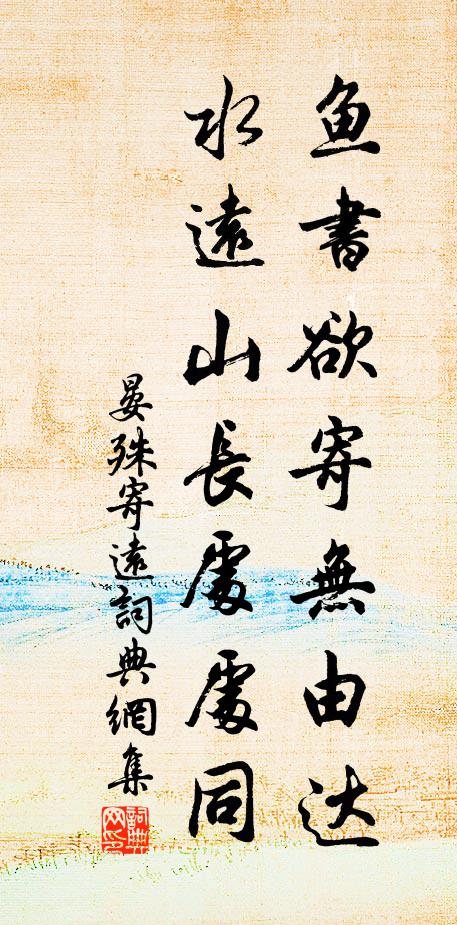 魚書欲寄無由达
水遠山長處處同
晏殊寄遠詞典網集
詞典网印